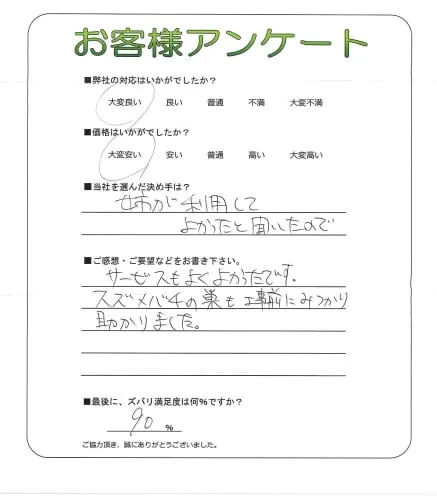 お客様アンケート
■弊社の対応はいかがでしたか?
大変良い 良い 普通 不満 大変不満
■価格はいかがでしたか?
大変安い 安い 普通 高い 大変高い
■当社を選んだ決め手は?
姉が利用して
よかったと聞いたので
■ご感想・ご要望などをお書き下さい。
サービスもよくよかったです.
スズメバチの巣も工事前にみつかり
助かりました。
■最後に、ズバリ満足度は何%ですか?
90 %
ご協力頂き、誠にありがとうございました。